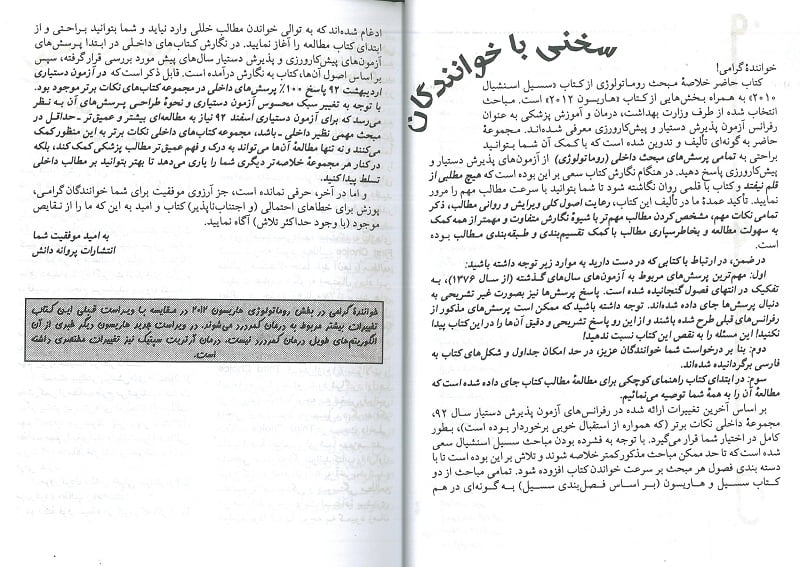 سخنی با خوانندگان
خوانندهٔ گرامی!
کتاب حاضر خلاصهٔ مبحث روماتولوژی از کتاب «سسیل اسنشیال
۲۰۱۰» به همراه بخش‌هایی از کتاب «هاریسون ۲۰۱۲» است. مباحث
انتخاب شده از طرف وزارت بهداشت، درمان و آموزش پزشکی به عنوان
رفرانس آزمون پذیرش دستیار و پیش‌کارورزی معرفی شده‌اند. مجموعهٔ
حاضر به گونه‌ای تألیف و تدوین شده است که با کمک آن شما بتوانید
براحتی به تمامی پرسش‌های مبحث داخلی (روماتولوژی) از آزمون‌های پذیرش دستیار و
پیش‌کارورزی پاسخ دهید. در هنگام نگارش کتاب سعی بر این بوده است که هیچ مطلبی از
قلم نیفتد و کتاب با قلمی روان نگاشته شود تا شما بتوانید با سرعت مطالب مهم را مرور
نمایید. تأکید عمدهٔ ما در تألیف این کتاب، رعایت اصول کلی ویرایش و روانی مطالب، ذکر
تمامی نکات مهم، مشخص کردن مطالب مهم‌تر با شیوهٔ نگارش متفاوت و مهمتر از همه کمک
به سهولت مطالعه و بخاطرسپاری مطالب با کمک تقسیم‌بندی و طبقه‌بندی مطالب بوده
است.
در ضمن، در ارتباط با کتابی که در دست دارید به موارد زیر توجه داشته باشید:
اول: مهم‌ترین پرسش‌های مربوط به آزمون‌های سال‌های گذشته (از سال ۱۳۷۶)، به
تفکیک در انتهای فصول گنجانیده شده است. پاسخ پرسش‌ها نیز بصورت غیر تشریحی به
دنبال پرسش‌ها جای داده شده‌اند. توجه داشته باشید که ممکن است پرسش‌های مذکور از
رفرانس‌های قبلی طرح شده باشند و از این رو پاسخ تشریحی و دقیق آن‌ها را در این کتاب پیدا
نکنید! این مسئله را به نقص این کتاب نسبت ندهید!
دوم: بنا بر درخواست شما خوانندگان عزیز، در حد امکان جداول و شکل‌های کتاب به
فارسی برگردانیده شده‌اند.
سوم: در ابتدای کتاب راهنمای کوچکی برای مطالعهٔ مطالب کتاب جای داده شده است که
مطالعهٔ آن را به همهٔ شما توصیه می‌نمائیم.
بر اساس آخرین تغییرات ارائه شده در رفرانس‌های آزمون پذیرش دستیار سال ۹۲،
مجموعهٔ داخلی نکات برتر (که همواره از استقبال خوبی برخوردار بوده است)، بطور
کامل در اختیار شما قرار می‌گیرد. با توجه به فشرده بودن مباحث سسیل اسنشیال سعی
شده است که تا حد ممکن مباحث مذکور کمتر خلاصه شوند و تلاش بر این بوده است تا با
دسته بندی فصول هر مبحث بر سرعت خواندن کتاب افزوده شود. تمامی مباحث از دو
کتاب سسیل و هاریسون (بر اساس فصل‌بندی سسیل) به گونه‌ای در هم
ادغام شده‌اند که به توالی خواندن مطالب خللی وارد نیاید و شما بتوانید براحتی و از
ابتدای کتاب مطالعه را آغاز نمایید. در نگارش کتاب‌های داخلی در ابتدا پرسش‌های
آزمون‌های پیش‌کارورزی و پذیرش دستیار سال‌های پیش مورد بررسی قرار گرفته، سپس
بر اساس اصول آن‌ها، کتاب به نگارش درآمده است. قابل ذکر است که در آزمون دستیاری
اردیبهشت ۹۲ پاسخ ۱۰۰٪ پرسش‌های داخلی در مجموعه کتاب‌های نکات برتر موجود بود.
با توجه به تغییر سبک محسوس آزمون دستیاری و نحوهٔ طراحی پرسش‌های آن به نظر
می‌رسد که برای آزمون دستیاری اسفند ۹۲ نیاز به مطالعه‌ای بیشتر و عمیق‌تر - حداقل در
مبحث مهمی نظیر داخلی - باشد، مجموعه کتاب‌های داخلی نکات برتر به این منظور کمک
می‌کنند و نه تنها مطالعهٔ آن‌ها می‌تواند به درک و فهم عمیق‌تر مطالب پزشکی کمک کند، بلکه
در کنار هر مجموعهٔ خلاصه‌تر دیگری شما را یاری می‌دهد تا بهتر بتوانید بر مطالب داخلی
تسلط پیدا کنید.
و اما در آخر، حرفی نمانده است، جز آرزوی موفقیت برای شما خوانندگان گرامی،
پوزش برای خطاهای احتمالی (و اجتناب‌ناپذیر) کتاب و امید به این که ما را از نقایص
موجود (با وجود حداکثر تلاش) آگاه نمایید.
به امید موفقیت شما
انتشارات پروانه دانش
خوانندهٔ گرامی در بخش روماتولوژی هاریسون ۲۰۱۲ در مقایسه با ویراست قبلی این کتاب
تغییرات بیشتر مربوط به درمان کمردرد می‌شوند. در ویراست جدید هاریسون دیگر خبری از آن
الگوریتم‌های طویل درمان کمردرد نیست. درمان آرتریت سپتیک نیز تغییرات مختصری داشته
است.